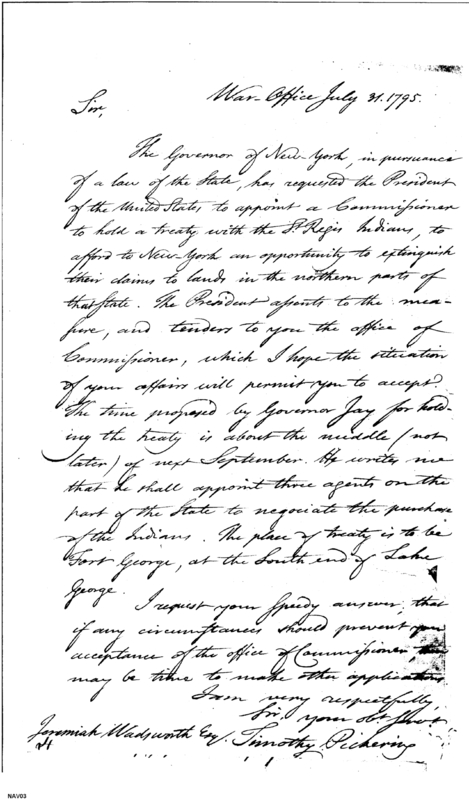 War-Office July 31. 1795.
Sir,
The Governor of New-York, in pursuance
of a law of the State, has requested the President
of the United States to appoint a Commissioner
to hold a treaty with the St. Regis Indians, to
afford to New-York an opportunity to extinguish
their claims to lands in the northern parts of
that State. The President assents to the mea-
sure, and tenders to you the office of
Commissioner, which I hope the situation
of your affairs will permit you to accept.
The time proposed by Governor Jay for hold-
ing the treaty is about the middle (not
later) of next September. He writes me
that he shall appoint three agents on the
part of the State to negociate the purchase
of the Indians. The place of treaty is to be
Fort George, at the South end of Lake
George.
I request your speedy answer, that
if any circumstances should prevent your
acceptance of the office of Commissioner, there
may be time to make other application.
I am very respectfully,
Sir, your obt. Servt
Jeremiah Wadsworth Esq. Timothy Pickering
NAV03